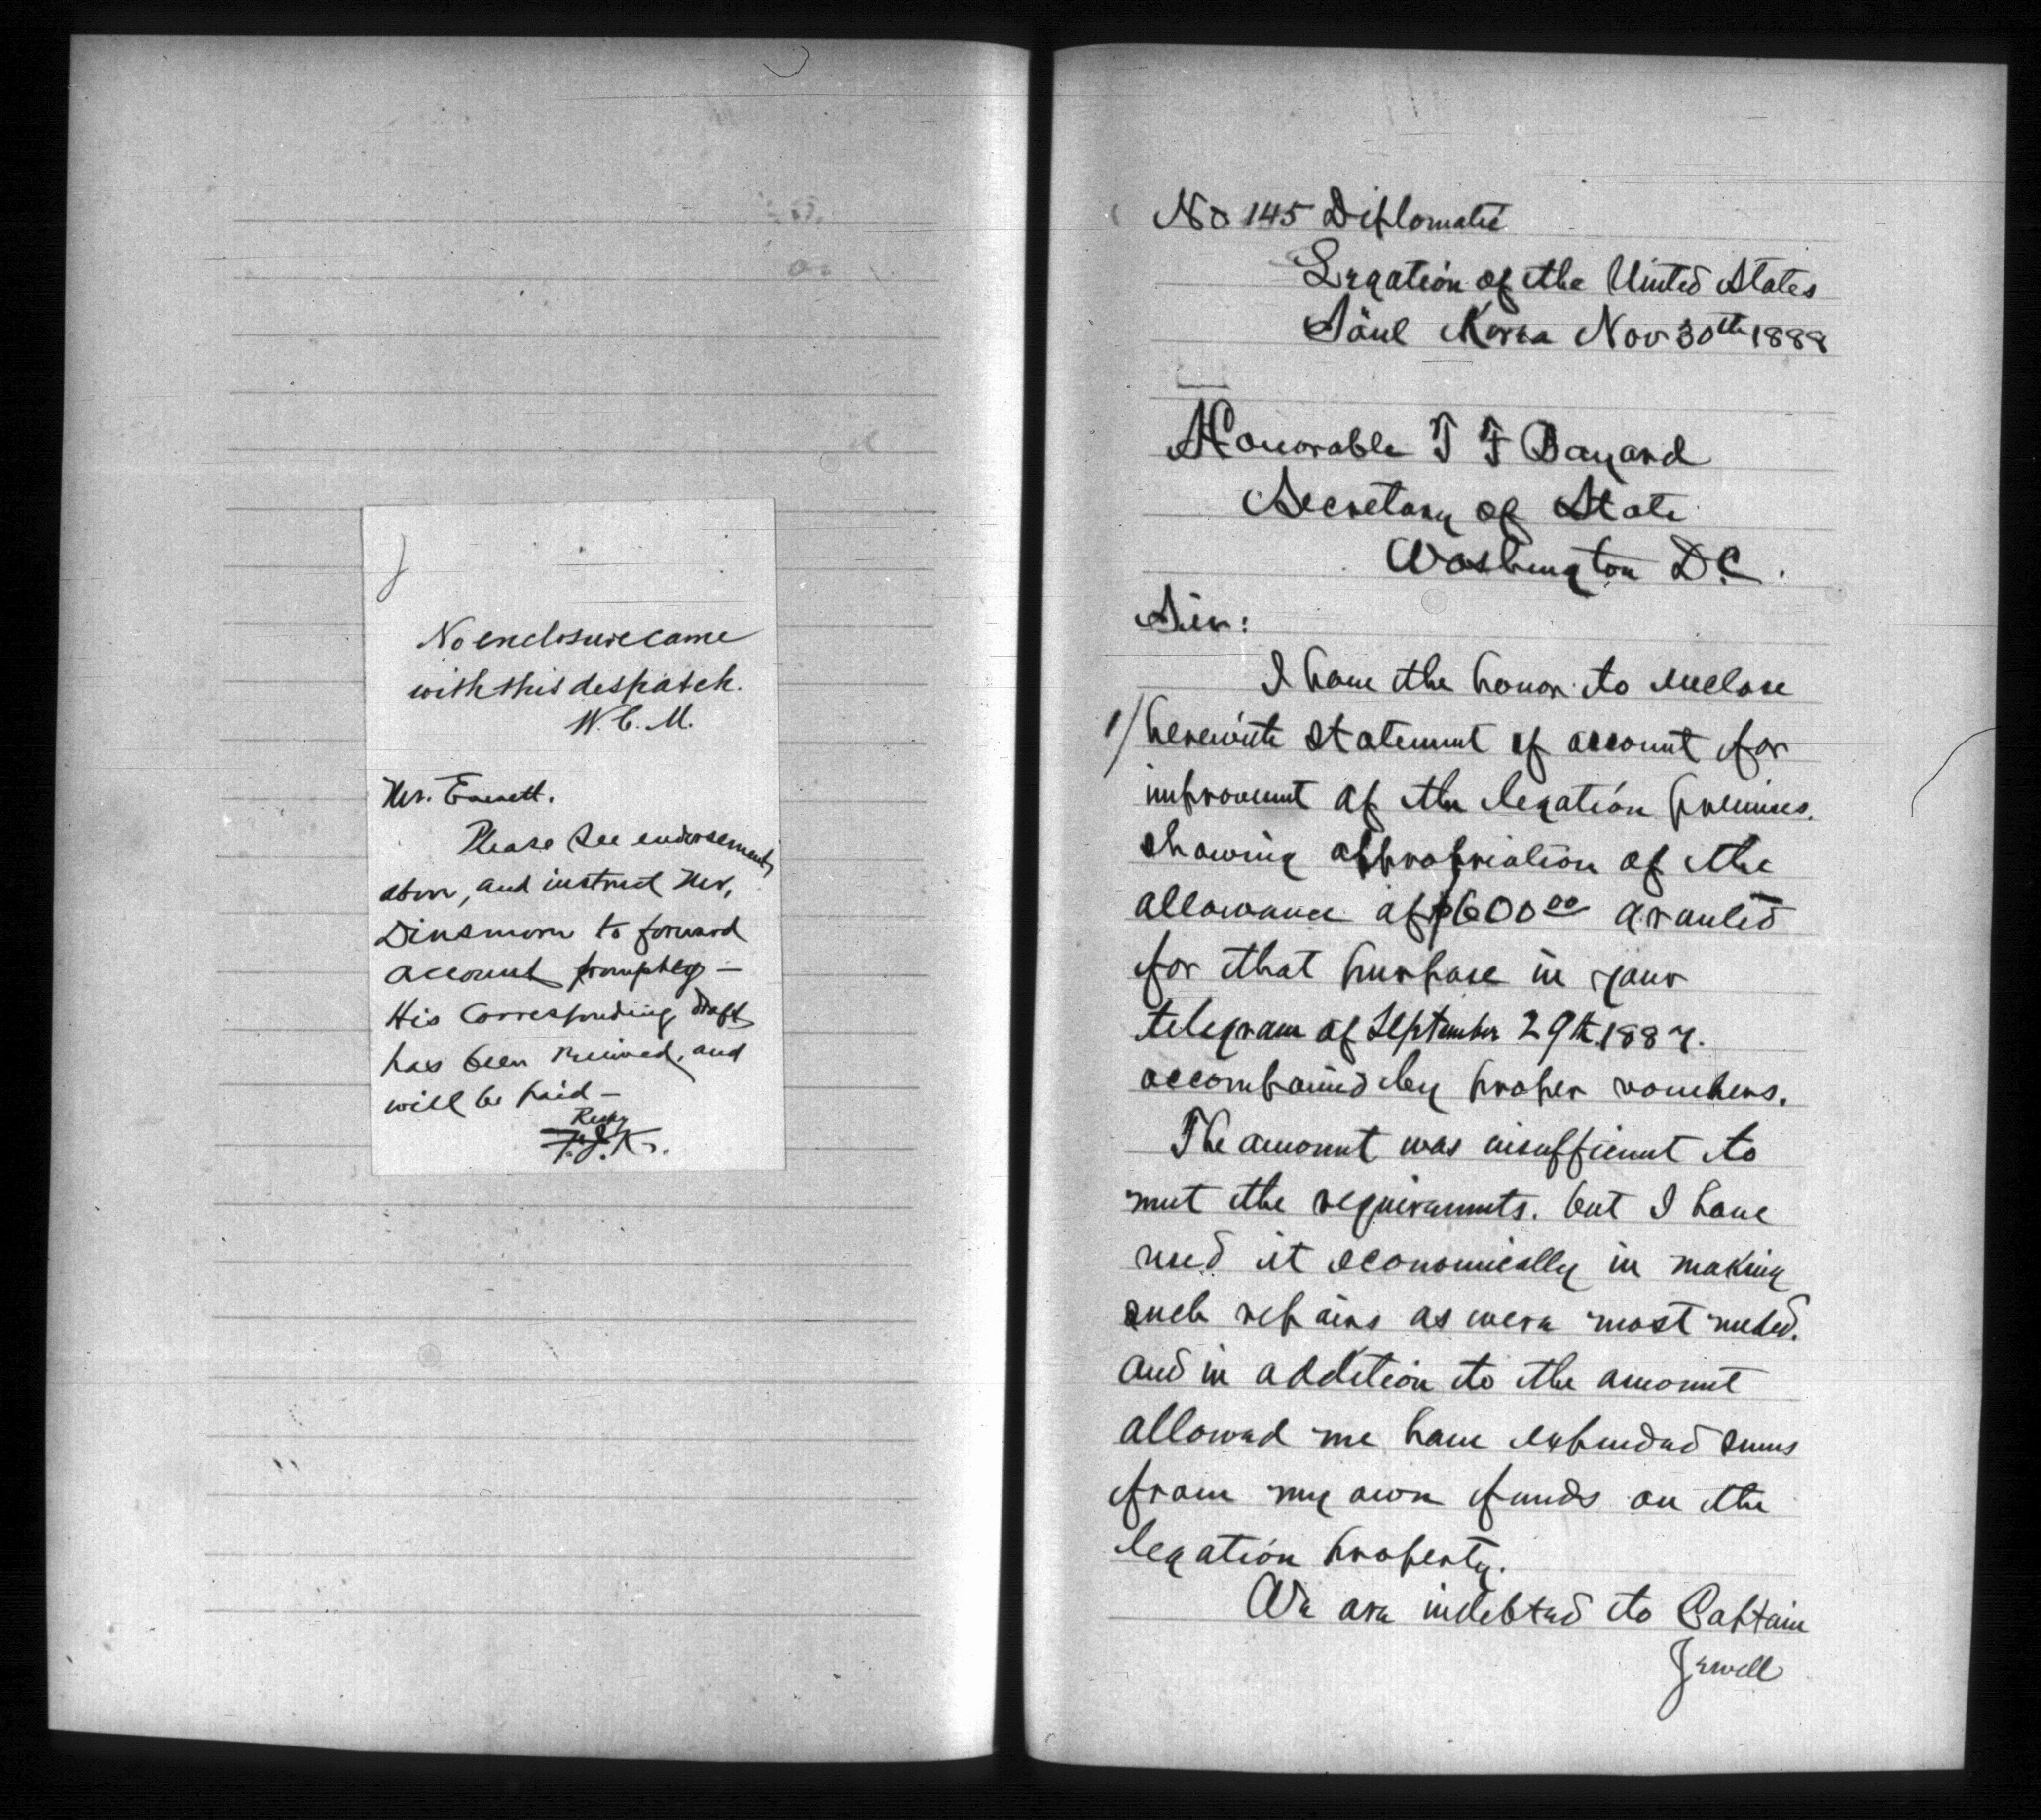 No enclosure came
with this despatch.
W. C. M.
Mr. Emmett.
Please see endorsement
above, and instruct Mr.
Dinsmore to forward
account promptly —
His corresponding draft
has been received, and
will be paid —
Resy
F. J. K.
No 145 Diplomatic
Legation of the United States
Söul Korea Nov 30th 1888
Honorable T F Bayard
Secretary of State
Washington D.C.
Sir:
I have the honor to enclose
1/ herewith statement of account for
improvement of the legation premises.
showing appropriation of the
allowance of $600 00 granted
for that purpose in your
telegram of September 29th 1887.
accompanied by proper vouchers.
The amount was insufficient to
meet the requirements. but I have
used it economically in making
such repairs as were most needed.
and in addition to the amount
allowed me have expended sums
from my own funds on the
legation property.
We are indebted to Captain
Jewell